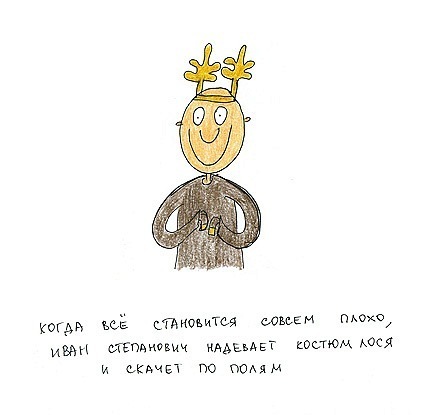 КОГДА ВСЁ СТАНОВИТСЯ СОВСЕМ ПЛОХО,
ИВАН СТЕПАНОВИЧ НАДЕВАЕТ КОСТЮМ ЛОСЯ
И СКАЧЕТ ПО ПОЛЯМ